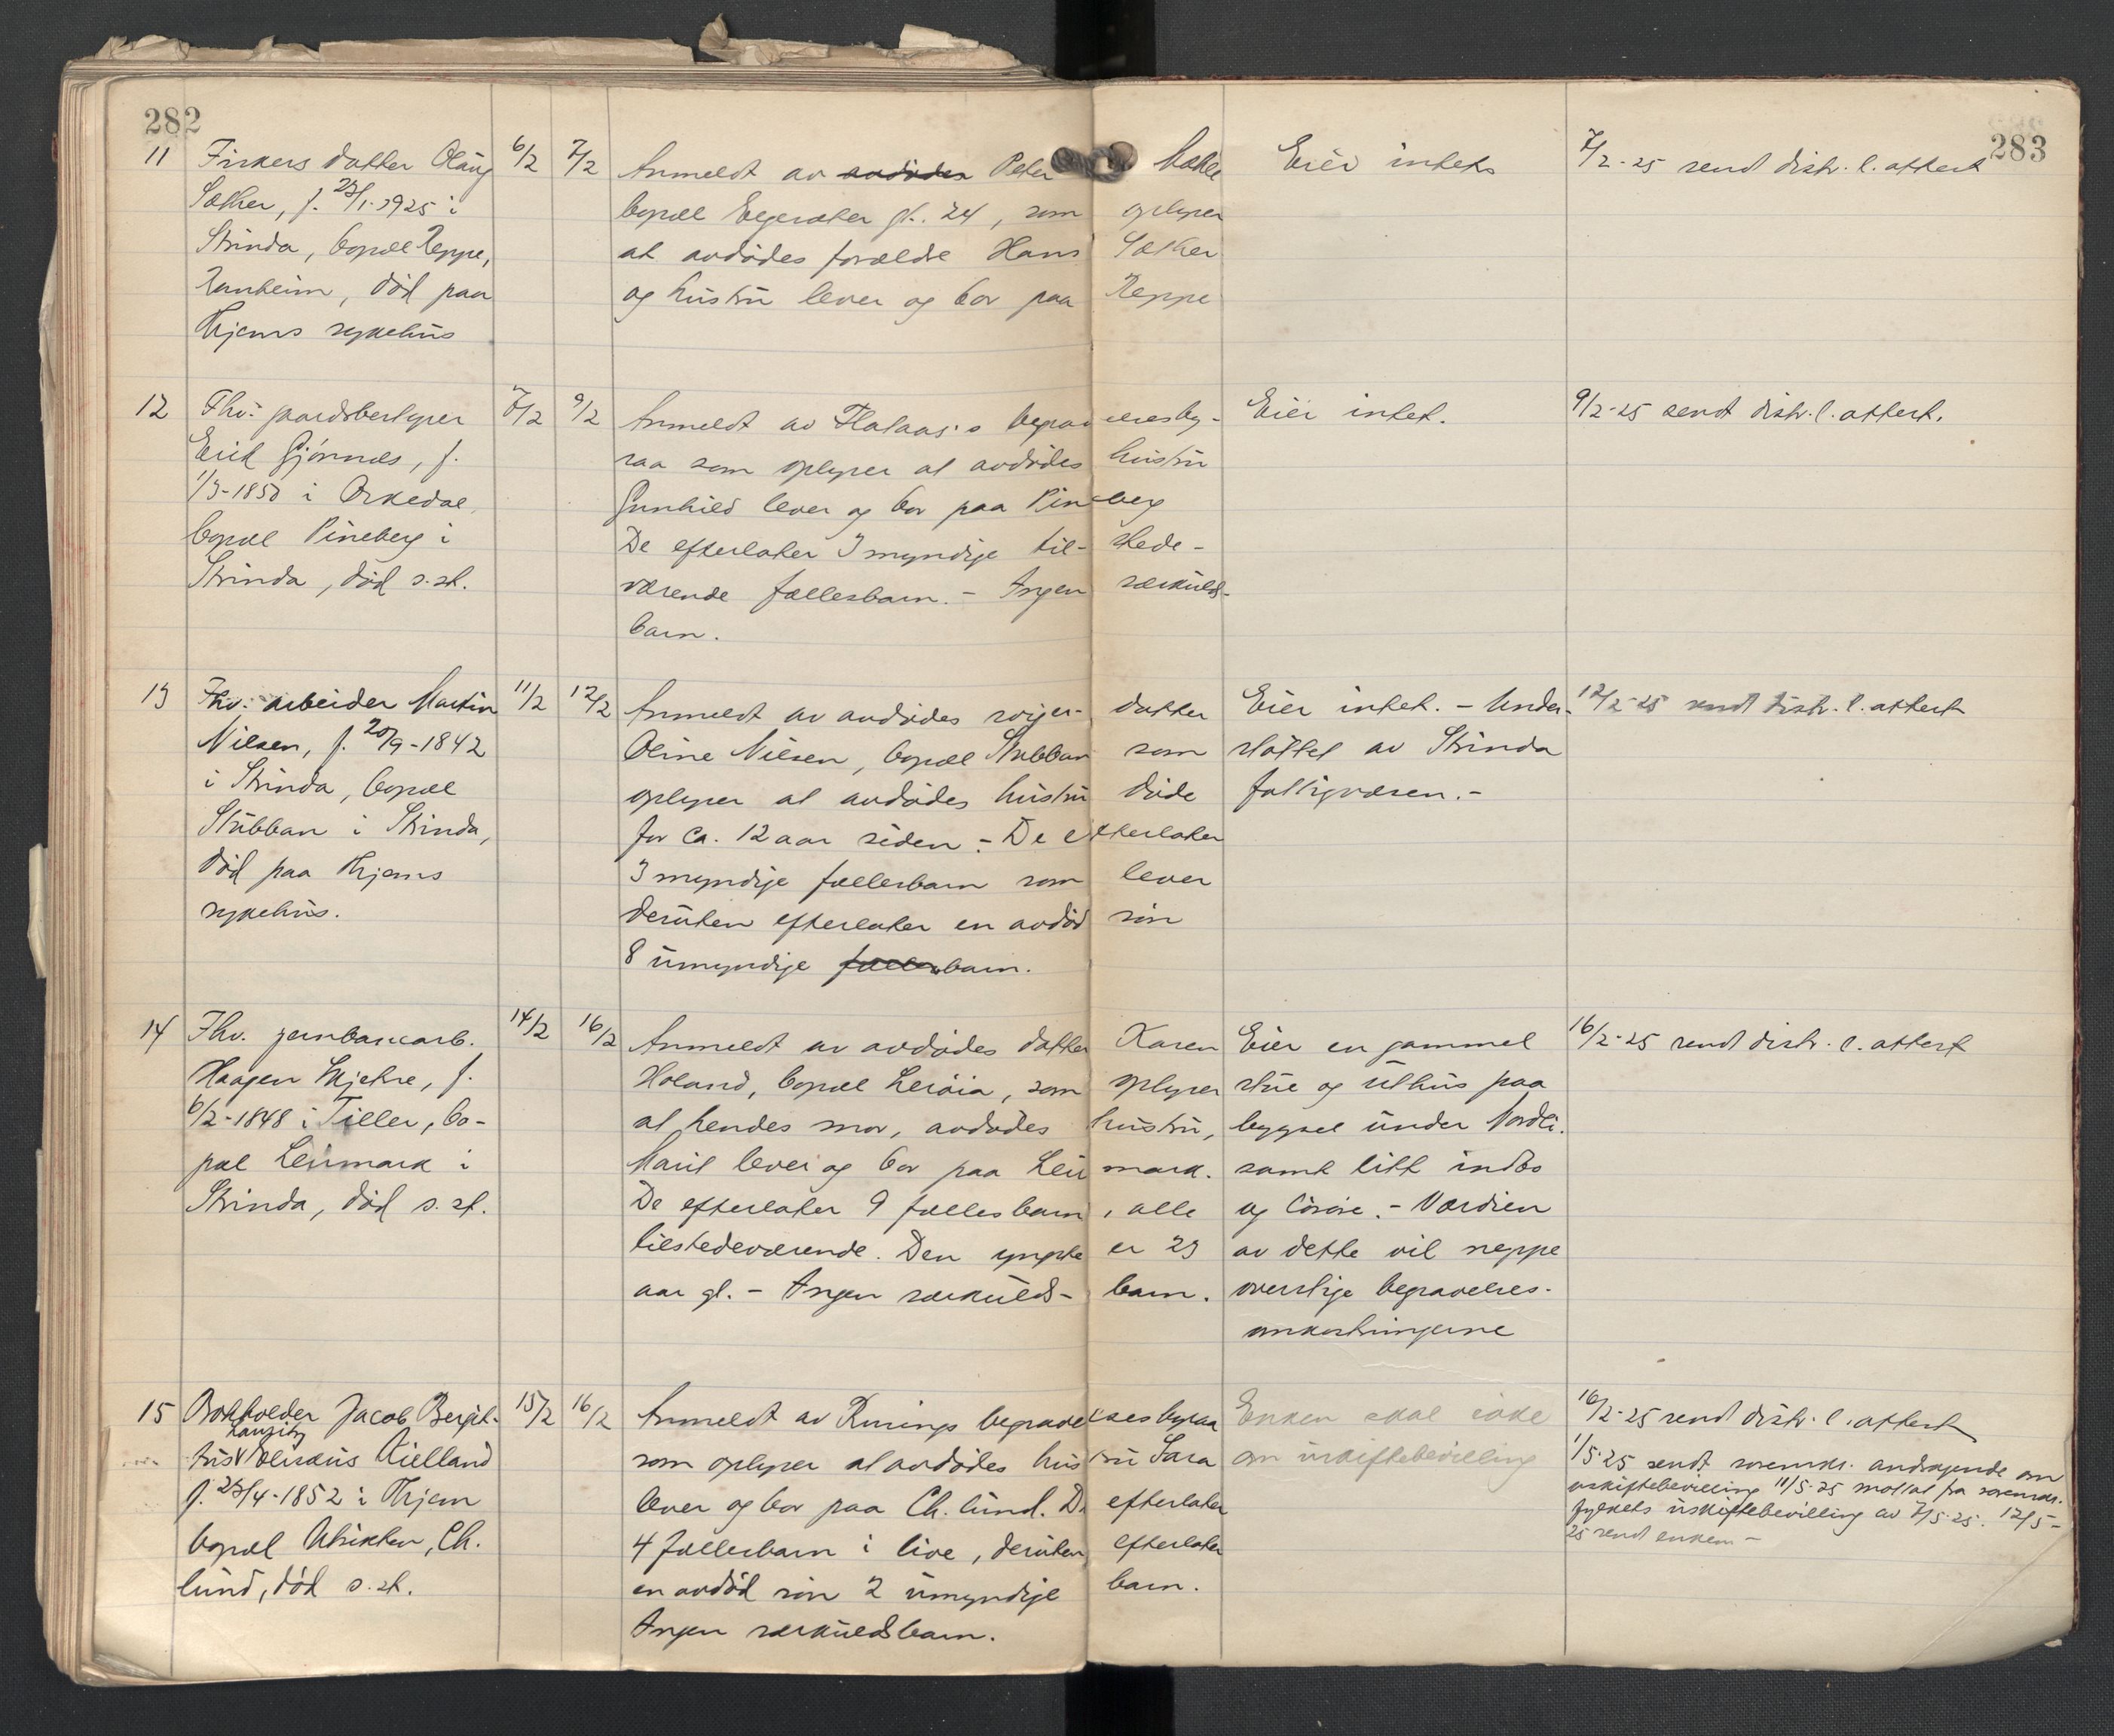 282
283
11 Fiskers datter Olaug 6/2 7/2 Anmeldt av avdødes Peter Mæhle Eier intet 7/2-25 sendt distr. l. attest
Sæther, f. 23/1-1925 i bopæl Egesæter gt. 24, som oplyser
Strinda, bopæl Reppe, at avdødes forældre Hans Sæther
Ranheim, død paa og hustru lever og bor paa Reppe
Thjems sykehus
12 Fhv. gaardsbestyrer 7/2 9/2 Anmeldt av Flataas's begravelsesby- Eier intet. 9/2-25 sendt distr. l. attest.
Erik Gjønnæs, f. raa som oplyser at avdødes hustru
1/3-1850 i Orkedal, Gunhild lever og bor paa Pineberg
bopæl Pineberg i De efterlater 3 myndige til- stede-
Strinda, død s. st. værende fællesbarn. - Ingen særkulds-
barn.
13 Fhv. arbeider Martin 11/2 12/2 Anmeldt av avdødes sviger- datter Eier intet. - Under- 12/2-25 sendt distr. l. attest
Nilsen, f. 20/9-1842 Oline Nilsen, bopæl Stubban som støttet av Strinda
i Strinda, bopæl oplyser at avdødes hustru døde fattigvæsen.-
Stubban i Strinda, for ca. 12 aar siden.- De efterlater
død paa Thjems 3 myndige fællesbarn som lever
sykehus. desuten efterlater en avdød søn
8 umyndige fællesbarn.
14 Fhv. jernbanearb. 14/2 16/2 Anmeldt av avdødes datter Karen Eier en gammel 16/2-25 sendt distr. l. attest
Haagen Skjetne, f. Høland, bopæl Lerøia, som oplyser stue og uthus paa
6/2-1848 i Tiller, bo- at hendes mor, avdødes hustru, bygsel under Nordli.
pæl Leirmark i Marit lever og bor paa Leirmark. samt litt indbo
Strinda, død s. st. De efterlater 9 fællesbarn, alle og løsøre.- Værdien
tilstedeværende. Den yngste er 23 av dette vil neppe
aar gl. - Ingen særkulds- barn. overstige begravelses-
omkostningerne
15 Bokholder Jacob Bergit- 15/2 16/2 Anmeldt av Rusings begravelsesbyraa Enken skal søke 16/2-25 sendt distr. l. attest
Lauritz
tius Kielland som oplyser at avdødes hustru Sara om uskiftebevilling 1/5-25 sendt sorenskr. andragende om
f. 23/4-1852 i Thjem lever og bor paa Ch. lund. De efterlater uskiftebevilling 11/5-25 mottat fra sorenskr.
bopæl Utsikten, Ch. 4 fællesbarn i live, desuten efterlater fylkets uskiftebevilling av 7/5-25. 12/5-
lund, død s. st. en avdød søn 2 umyndige barn. 25 sendt enken -
Ingen særkuldsbarn.